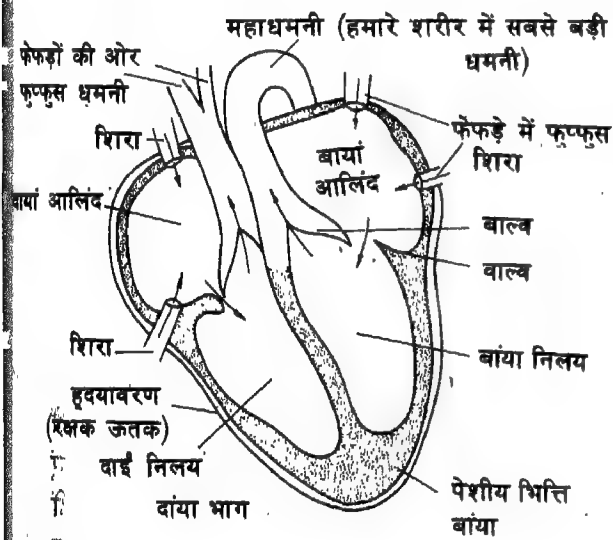 महाधमनी (हमारे शरीर में सबसे बड़ी
धमनी)
फेफड़ों की ओर
फुप्फुस धमनी
शिरा
बायां
आलिंद
फेफड़े में फुप्फुस
शिरा
आलिंद
बाल्व
वाल्व
शिरा
बांया निलय
हृदयावरण
(रक्षक ऊतक)
दाईं निलय
दांया भाग
पेशीय भित्ति
बांया